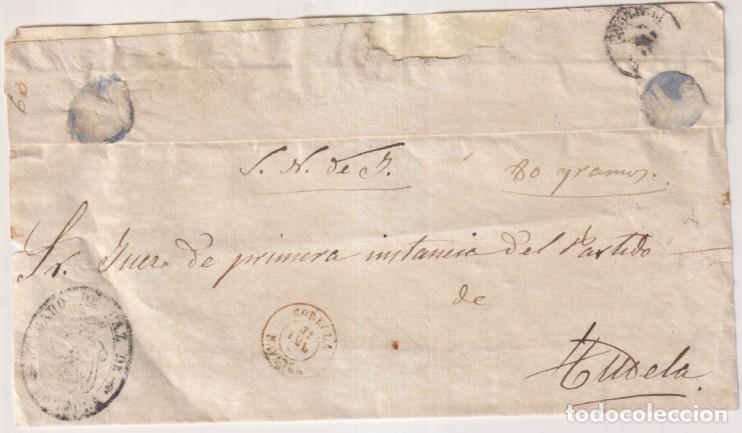 60
S. N. de J. 80 gramos.
Sr. Juez de primera instancia del Partido
de
Tudela.
JUZGADO DE PAZ DE
CORELLA
31
JUL
NAVARRA
todocoleccion